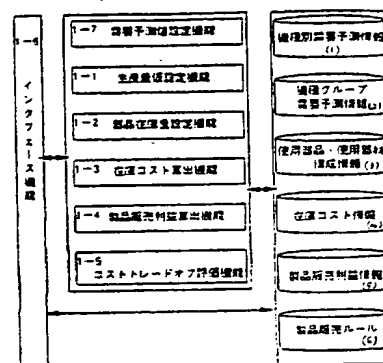 1-6
インタフェース機能
1-7 需要予測値設定機能
1-1 生産量値設定機能
1-2 部品在庫量設定機能
1-3 在庫コスト算出機能
1-4 製品販売利益算出機能
1-5
コストトレードオフ評価機能
機種別需要予測情報
(1)
機種グループ
需要予測情報(2)
使用部品・使用部材
構成情報(3)
在庫コスト情報
(4)
製品販売利益情報
(5)
製品販売ルール
(6)